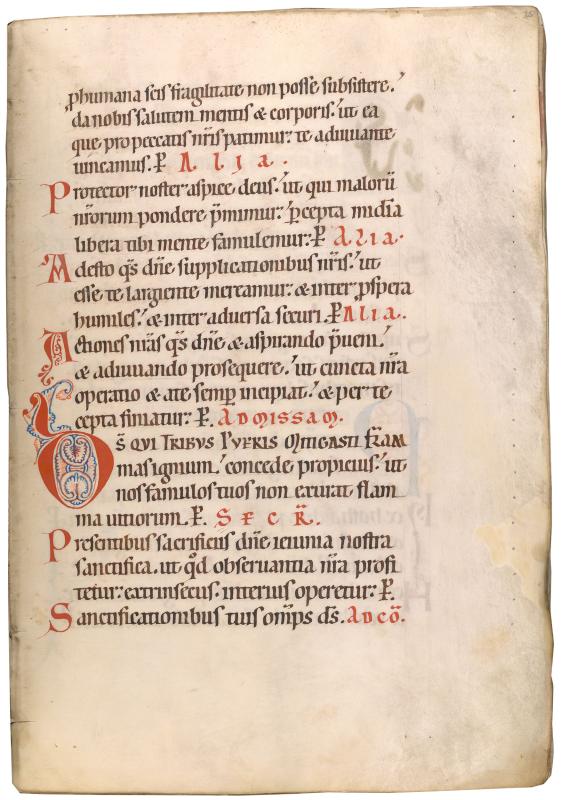 ꝓhumana scis fragilitate non posse subsistere.
da nobis salutem mentis & corporis. ut ea
que pro peccatis nr̄is patimur. te adiuuante
uincamus. P̄. Alia.
Protector noster aspice deus. ut qui malorū
nr̄orum pondere p̄mimur. ꝑcepta mīdia
libera tibi mente famulemur. P̄ Alia.
Adesto qs̄ dn̄e supplicationibus nr̄is. ut
esse te largiente mereamur. & inter ꝓspera
humiles. & inter aduersa securi. P̄ Alia.
Actiones nr̄as qs̄ dn̄e & aspirando p̄ueni.
& adiuuando prosequere. ut cuncta nr̄a
operatio & a te semꝑ incipiat. & per te
cepta finiatur. P̄. Ad missam.
Ds̄ QUI TRIBUS PUERIS MITIGASTI FLAM
mas ignium. concede propicius. ut
nos famulos tuos non exurat flam
ma uitiorum. P̄. SECR̄.
Presentibus sacrificiis dn̄e ieiunia nostra
sanctifica. ut qd̄ obseruantia nr̄a profi
tetur extrinsecus. interius operetur. P̄.
Sanctificationibus tuis om̄ps ds̄. AD CŌ.